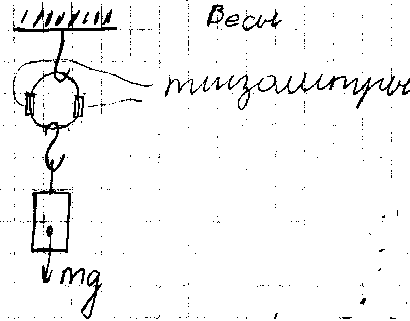 Весы
тензометры
mg